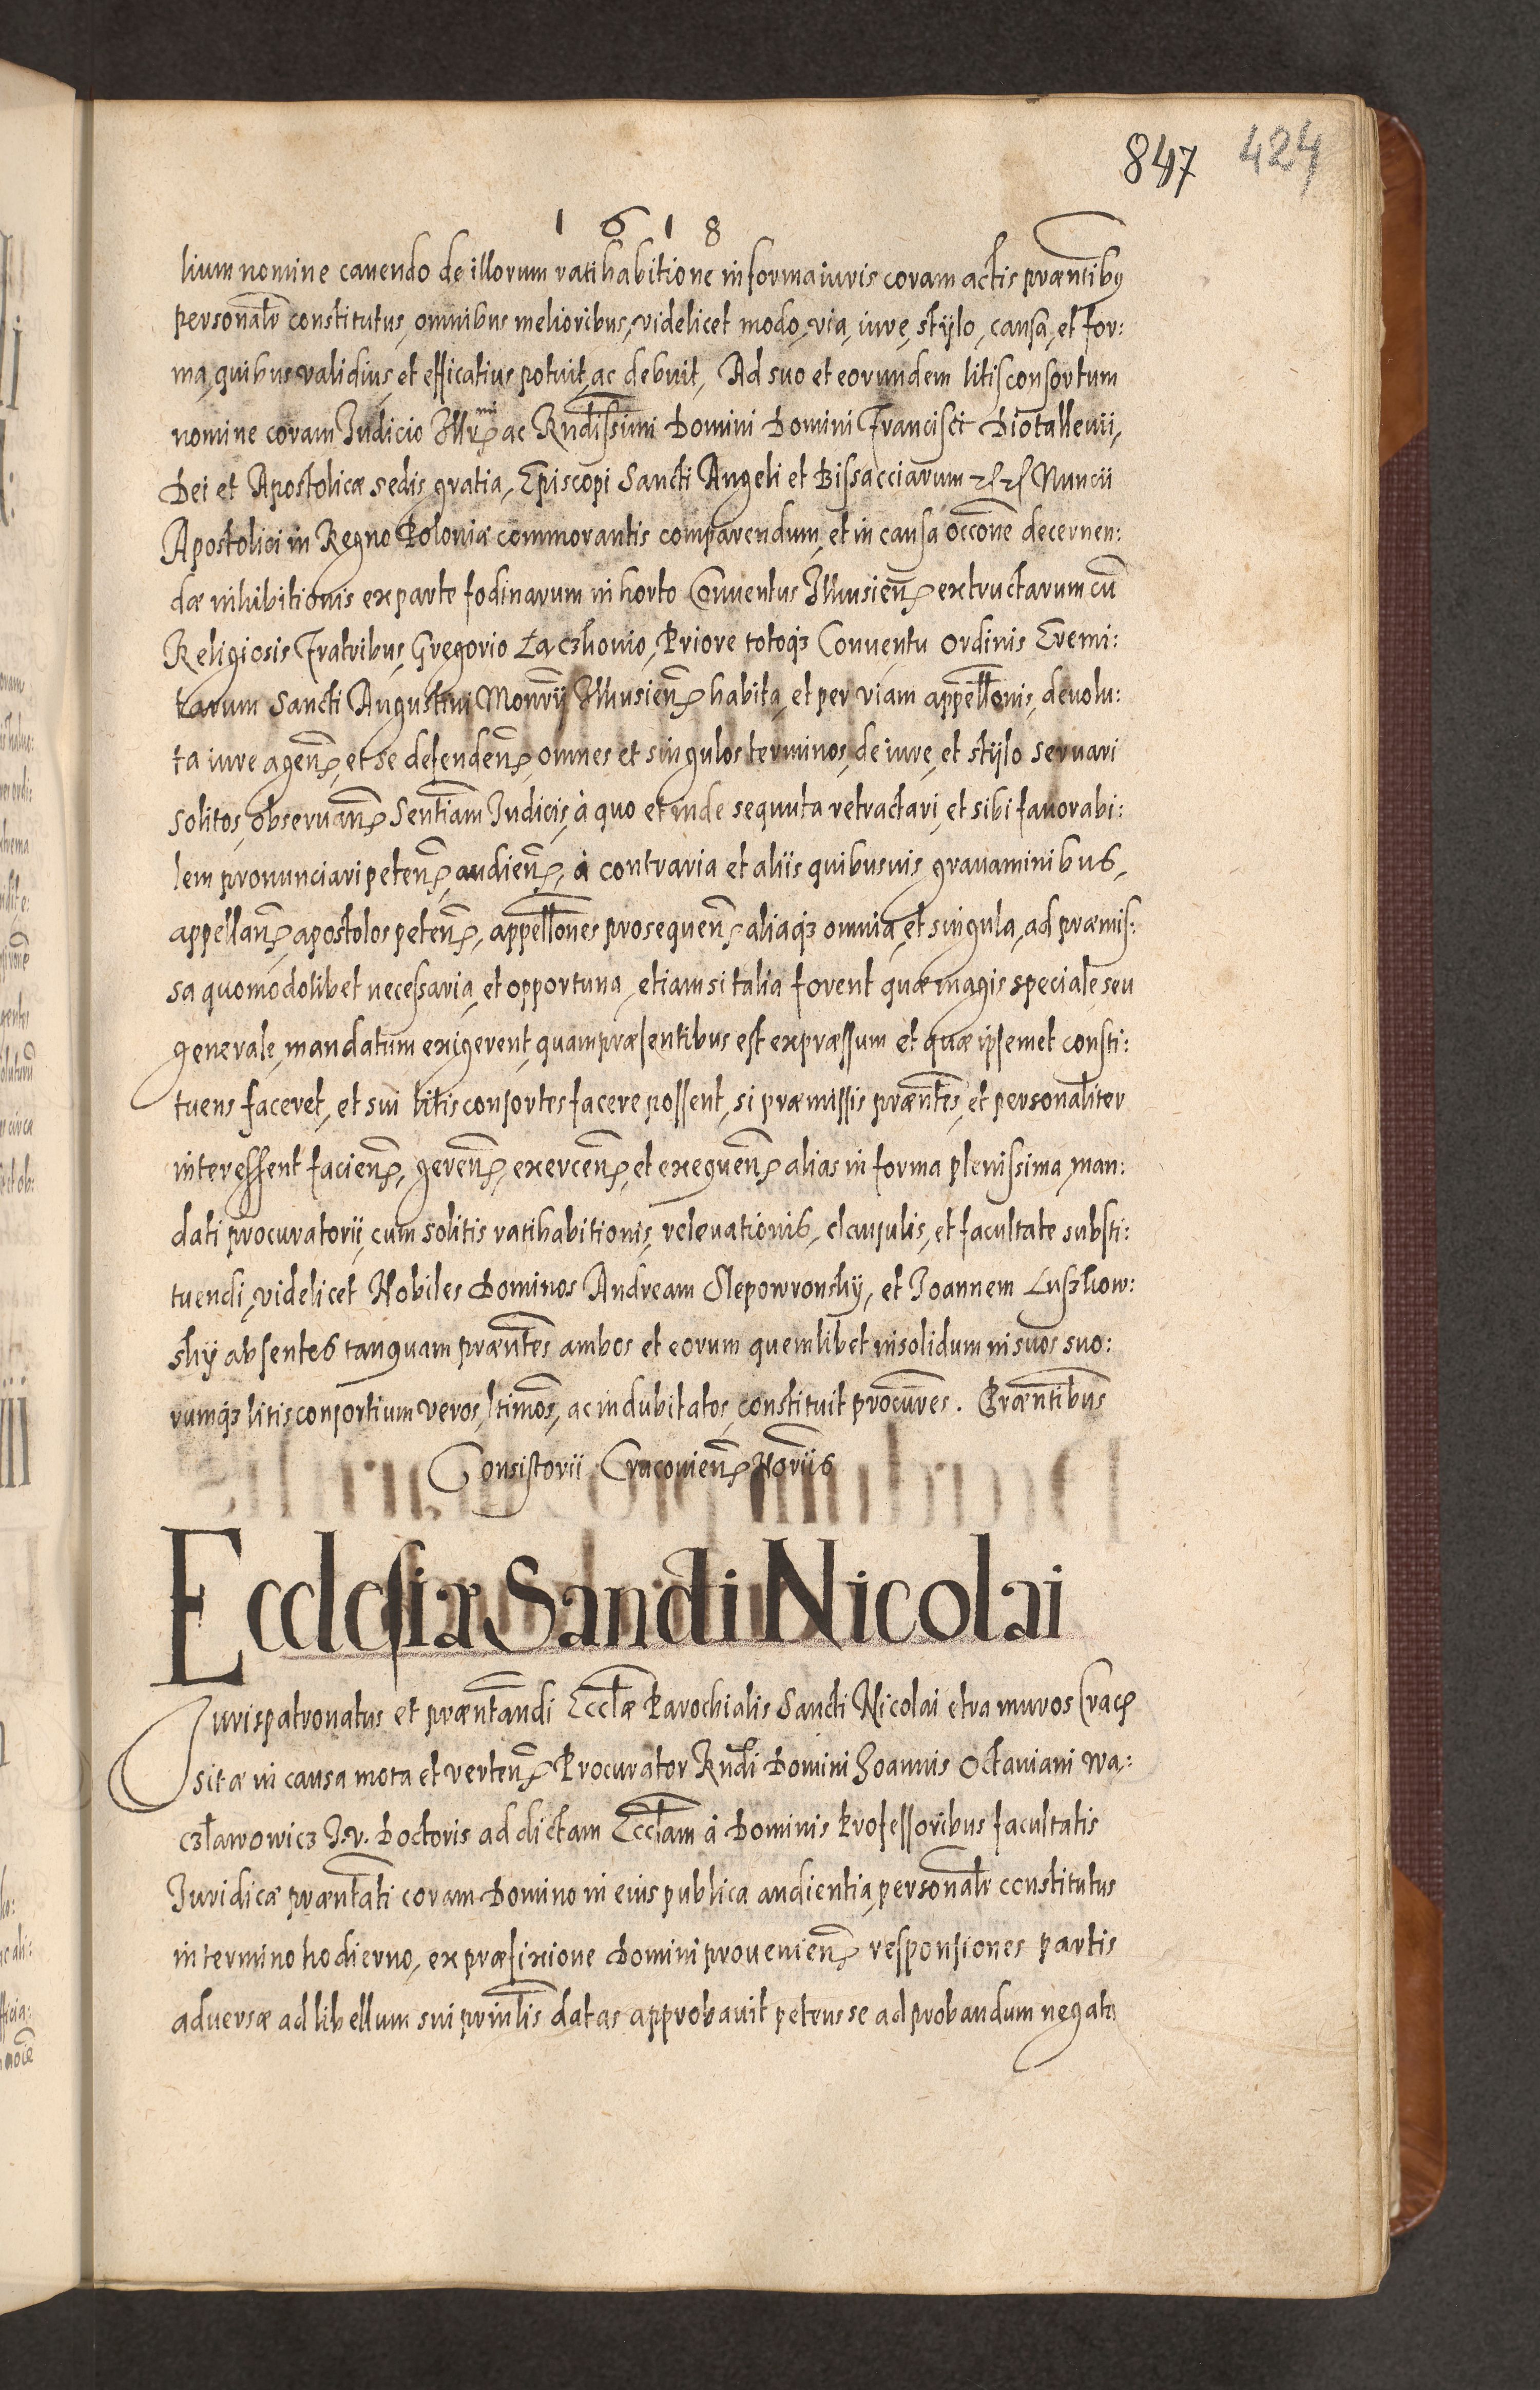 847 424
1618
lium nomine cauendo de illorum ratihabitione in forma iuris coram actis præntibus
personalr constitutus, omnibus melioribus, videlicet modo, via, iure, stylo, causa, et for:
ma, quibus validius, et efficatius potuit, ac debuit, Ad suo et eorundem litisconsortum
nomine coram Iudicio Illrmi ac Rndissimi Domini Domini Francisci Diotalleuii,
Dei et Apostolicæ sedis gratia, Episcopi Sancti Angeli et Bissacciarum Nuncii
Apostolici in Regno Poloniæ commorantis comparendum, et in causa occone decernen:
dæ inhibitionis ex parte fodinarum in horto Conuentus Illkusien extructarum cu
Religiosis Fratribus, Gregorio Łaczkonio, Priore totoq3 Conuentu ordinis Eremi:
tarum Sancti Augustini Monrij Illkusien habita, et per viam appellonis, deuolu:
ta iure agen, et se defenden, omnes et singulos terminos, de iure, et stylo seruari
solitos, obseruan, Sentiam Iudicis, à quo et inde sequuta retractari, et sibi fauorabi:
lem pronunciari peten, audien, à contraria et aliis quibusuis grauaminibus,
appellan, apostolos peten, appellones prosequen, aliaq3 omnia, et singula, ad præmis:
sa quomodolibet necessaria, et opportuna, etiam si talia forent quæ magis speciale seu
generale, mandatum exigerent, quam præsentibus est expræssum et quæ ipsemet consti:
tuens faceret, et sui litis consortes facere possent, si præmissis præntes, et personaliter
interessent facien, geren, exercen, et exequen alias in forma plenissima, man:
dati procuratorii, cum solitis ratihabitionis, releuationis, clausulis, et facultate substi:
tuendi, videlicet Nobiles Dominos Andream Slepowronsky, et Ioannem Luszkow:
sky absentes tanquam præntes ambos et eorum quemlibet insolidum in suos suo:
rumq3 litis consortium veros, ltimos, ac indubitatos, constituit procures. Præntibus
Consistorii Cracouien Noriis
Ecclesiæ Sancti Nicolai
Iurispatronatus et præntandi Eccłæ Parochialis Sancti Nicolai etra muros Crac
sitæ in causa mota et verten Procurator Rndi Domini Ioannis Octauiani Wa:
czławowicz I. V. Doctoris ad dictam Eccłam à Dominis Professoribus facultatis
Iuridicæ præntati coram Domino in eius publica audientia, personalr constitutus
in termino hodierno, ex præfixione Domini prouenien responsiones partis
aduersæ ad libellum sui prinlis datas approbauit petens se ad probandum negata